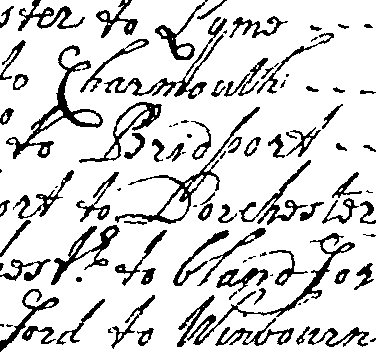 ster to Lyme ---
to Charmouth ---
to Bridport --
ort to Dorchester
hest.r to blandfor
ford to Winbourn